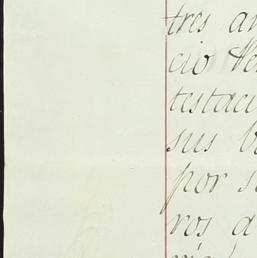 tres
cio
testaci
sus b
por s
ros a